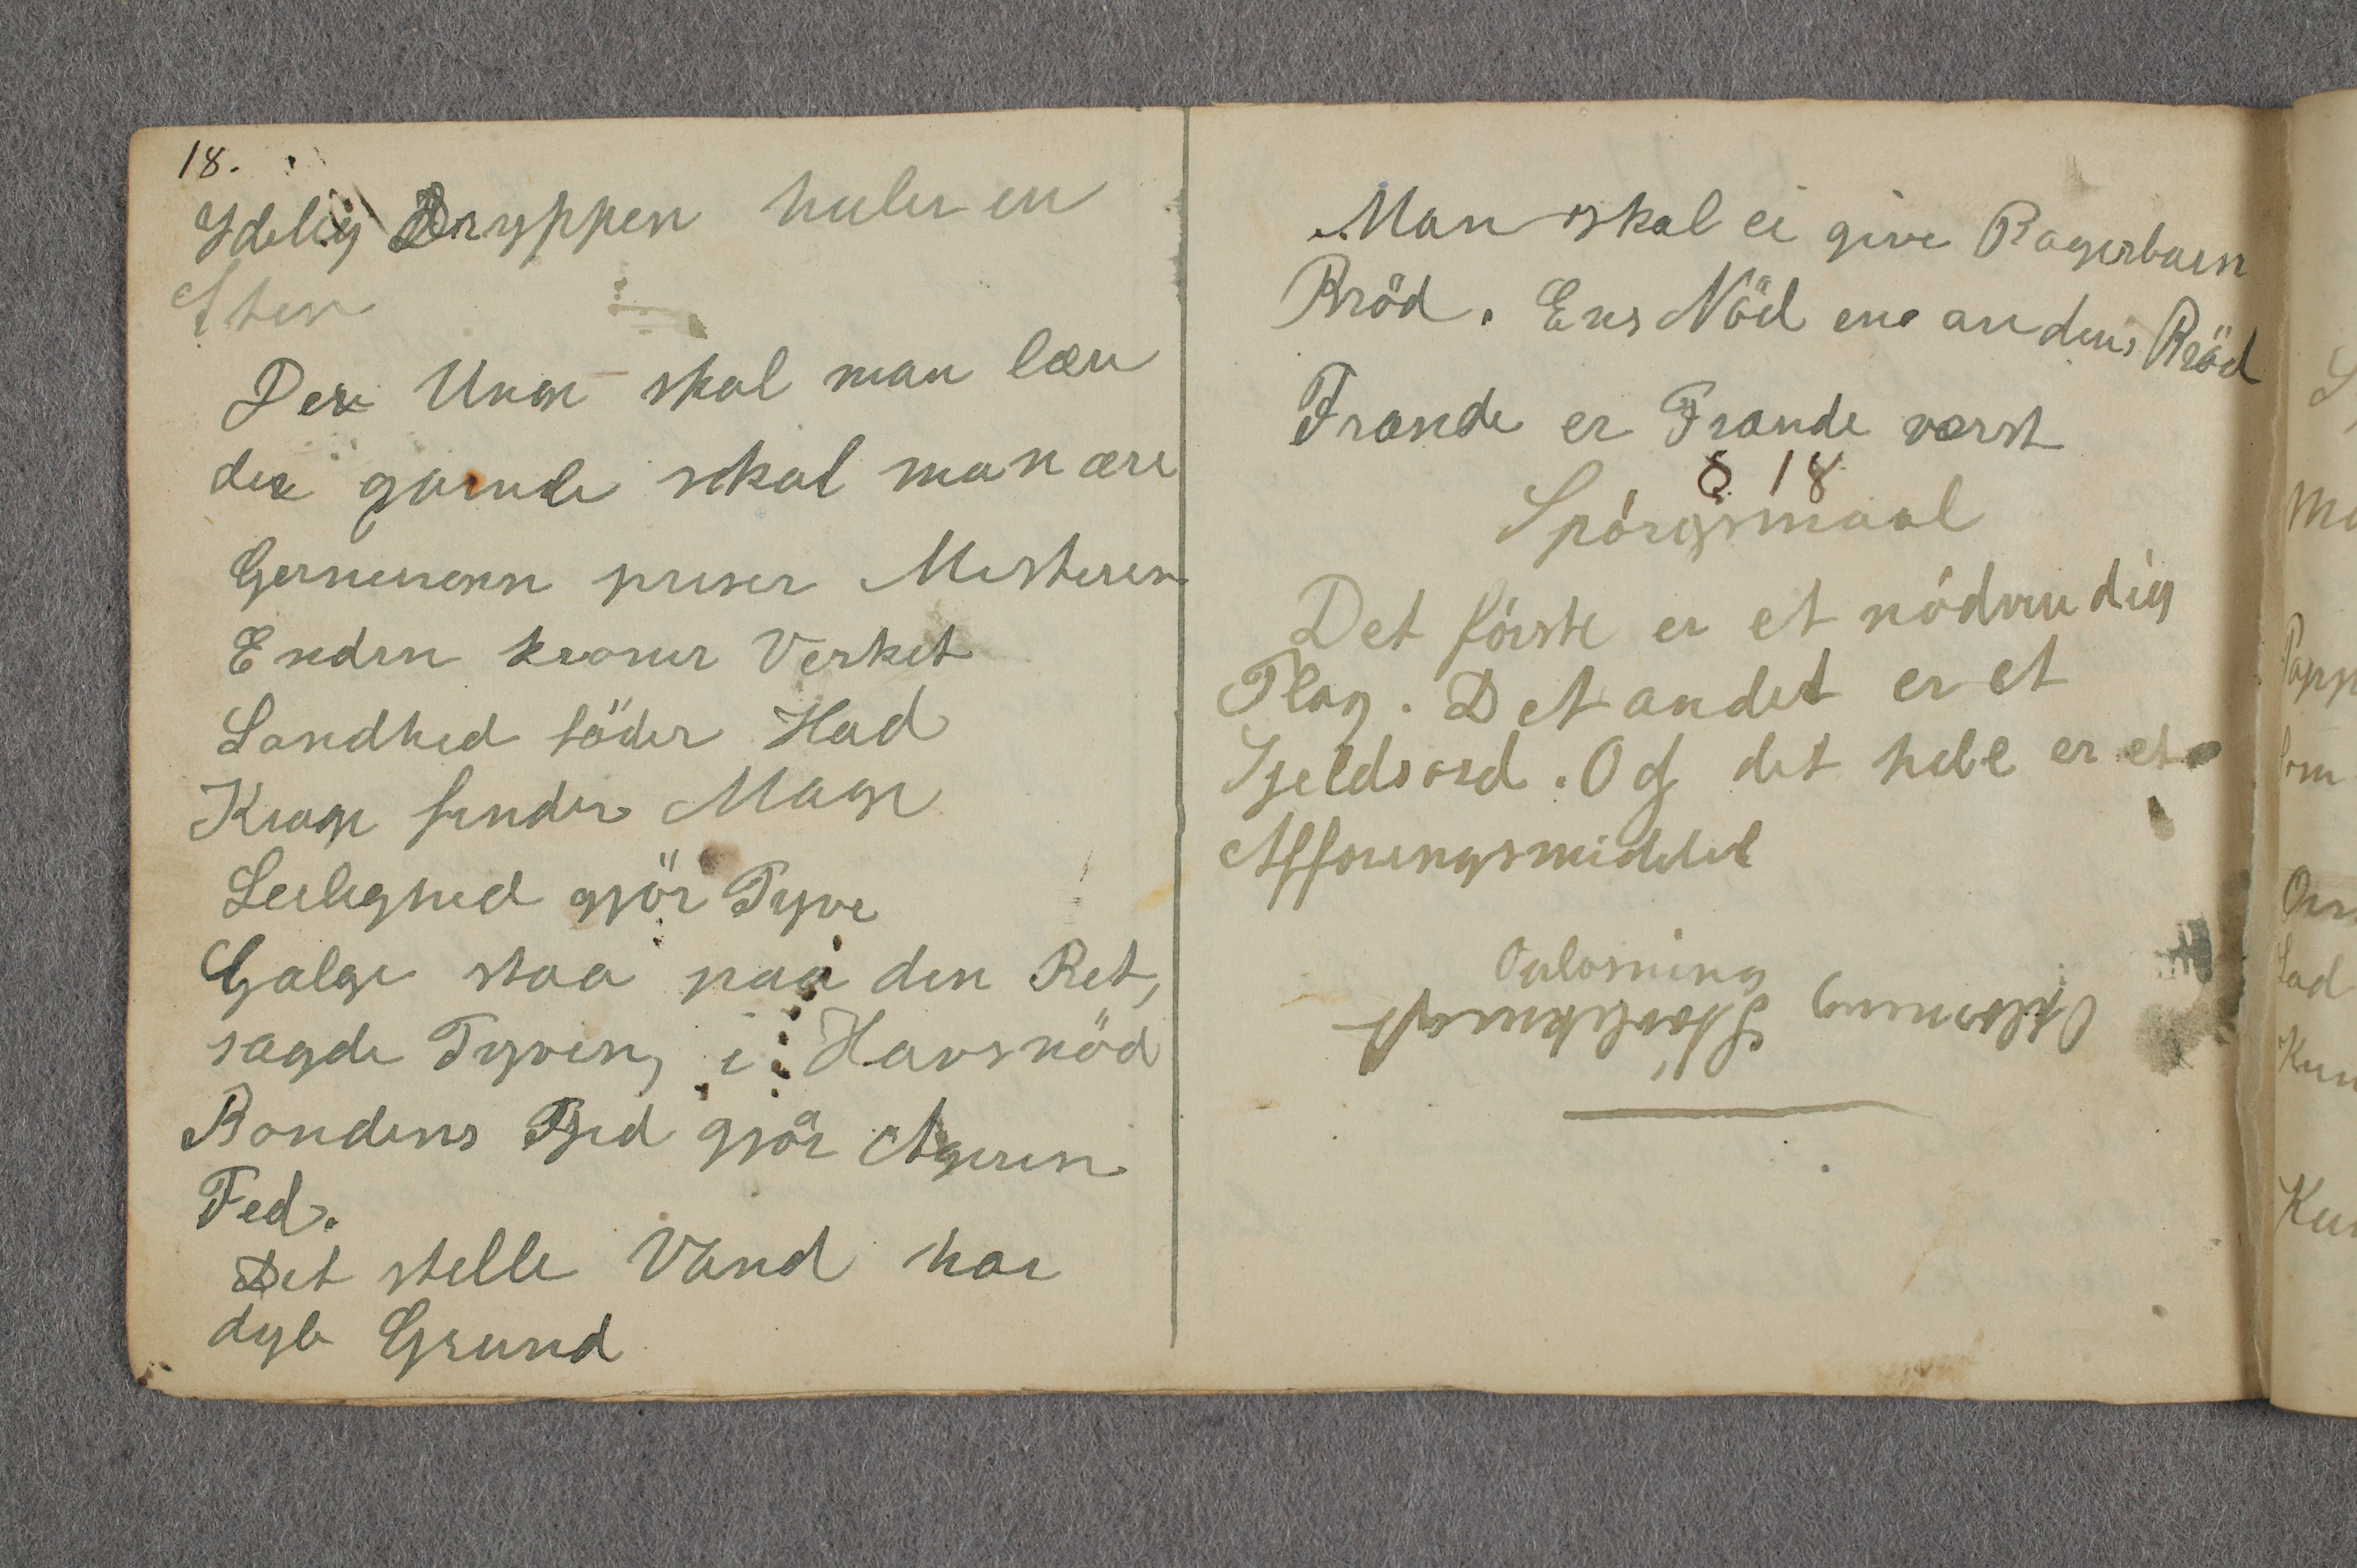 18.
Idelig Dryppen huler en
Sten
Den Unge skal man lære
den gamle skal man ære
Gerningen priser Mesteren
Enden kroner Verket
Sandhed föder Had
Krage finder Mage
Leilighed gjör Tyve
Galge staa paa den Ret,
sagde Tyven, i Havsnöd
Bondens Fjed gjör Ageren
Fed.
Det stille Vand har
dyb Grund
Man skal ei give Bagerbarn
Bröd. Ens Nöd ens andens Bröd
Frænde er Frænde værst
§ 18
Spórgsmaal
Det fórste er et nódvendig
Plag. Det andet er et
Sjeldsord. Og det hele er et
Afföringsmiddel
Oplosning
Oplosning Stövleknegt